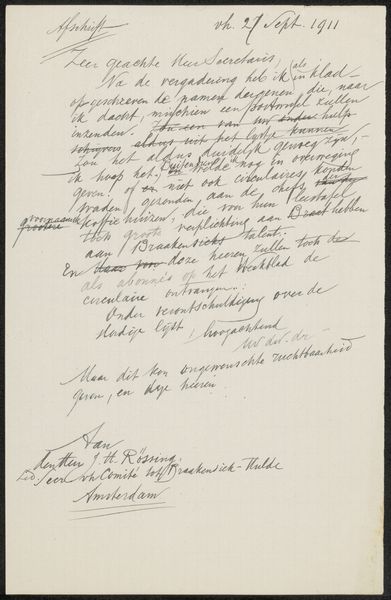 Afschrift
vh. 27 Sept. 1911
Zeer geachte Heer Secretaris,
Na de vergadering heb ik (als in klad-
opgeschreven de namen dergenen die, naar
ik dacht, misschien een postwissel zullen
inzenden. Zou een van uw onder hulp-
schrijvers, aldus uit het lijstje kunnen
Zou het aldus duidelijk genoeg zijn,-
ik hoop het; Buitendien welde nog in overweging
geven: of en niet ook circulaires konden
worden gezonden, aan de chefs
voornaamste grootere koffiehuizen, die voor hun leestafel
toch groote verplichting aan Braak hebben
aan Braakensieks talent.
En daar voor deze heeren zullen toch de
als abonnés op het Weekblad de
circulaire ontvangen:
Onder verontschuldiging over de
slordige lijst, hoogachtend
Uw dw. dr.
Maar dit kon ongewenschte ruchtbaarheid
geven, en deze heeren
Aan
den Heer J. H. Rössing
Lid. Secr vh Comité tot Braakensiek-Hulde
Amsterdam